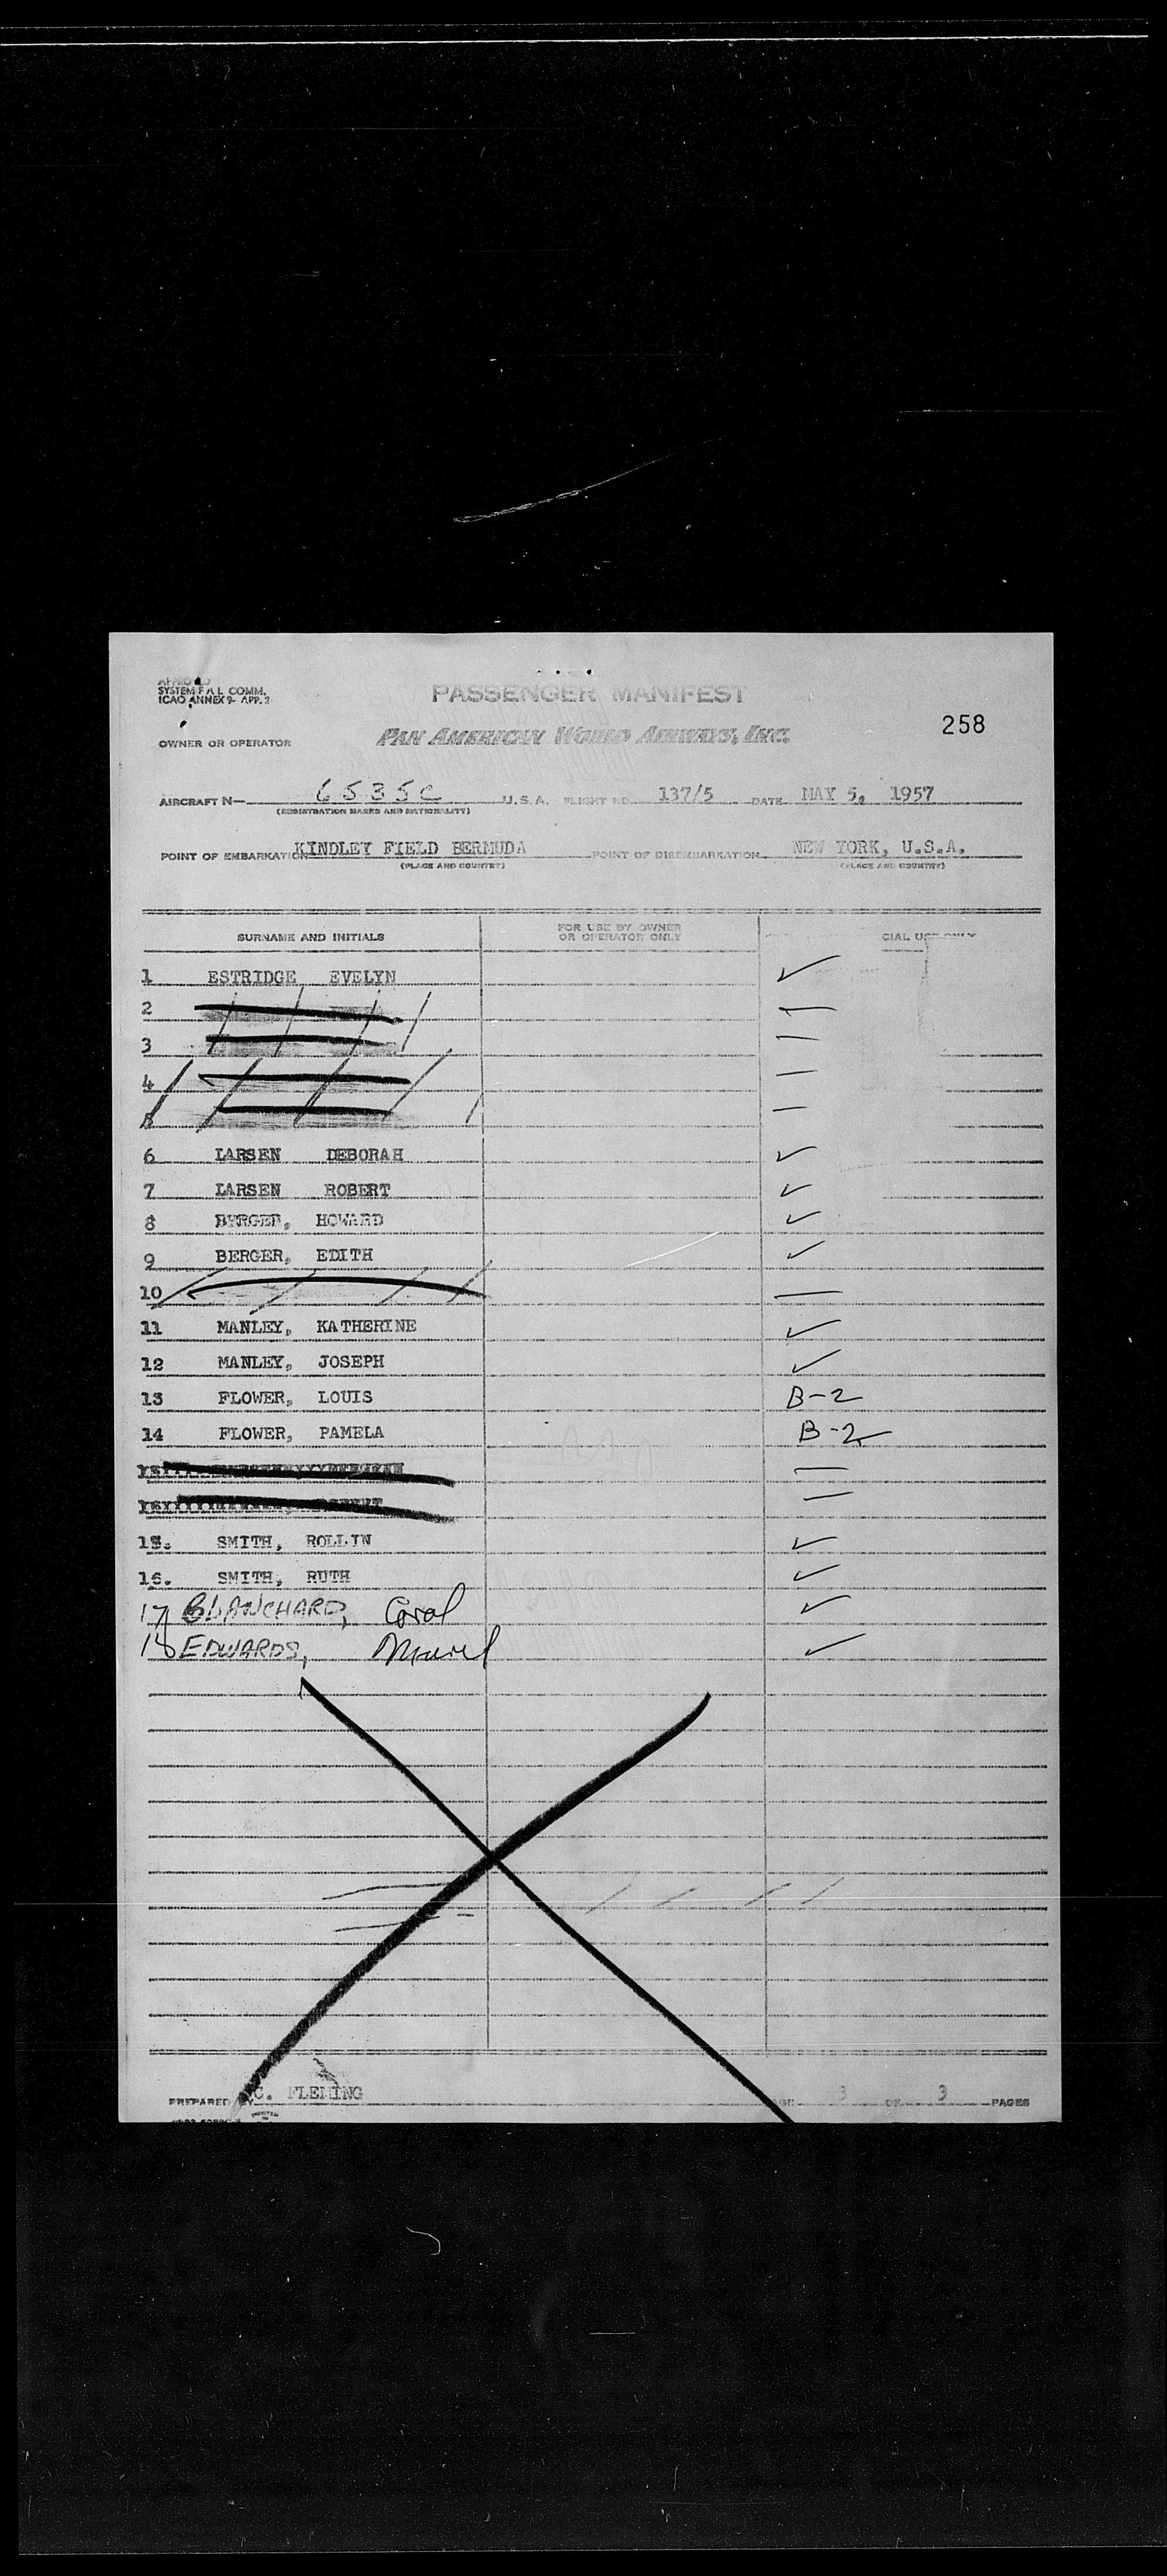 SYSTEM F A L COMM.
ICAO ANNEX 9- APP. 2
PASSENGER MANIFEST
258
OWNER OR OPERATOR PAN AMERICAN WORLD AIRWAYS, INC.
AIRCRAFT N— 6535C U.S.A. FLIGHT NO. 137/5 DATE MAY 5, 1957
(REGISTRATION MARKS AND NATIONALITY)
POINT OF EMBARKATION KINDLEY FIELD BERMUDA POINT OF DISEMBARKATION NEW YORK, U.S.A.
(PLACE AND COUNTRY) (PLACE AND COUNTRY)
SURNAME AND INITIALS FOR USE BY OWNER OR OPERATOR ONLY CIAL USE ONLY
1 ESTRIDGE EVELYN ✓
2
3
4
5
6 LARSEN DEBORAH ✓
7 LARSEN ROBERT ✓
8 BERGER, HOWARD ✓
9 BERGER, EDITH ✓
10
11 MANLEY, KATHERINE ✓
12 MANLEY, JOSEPH ✓
13 FLOWER, LOUIS B-2
14 FLOWER, PAMELA B-2
15. SMITH, ROLLIN ✓
16. SMITH, RUTH ✓
17 BLANCHARD, Coral ✓
18 EDWARDS, ✓
PREPARED BY C. FLEMING 3 OF 3 PAGES